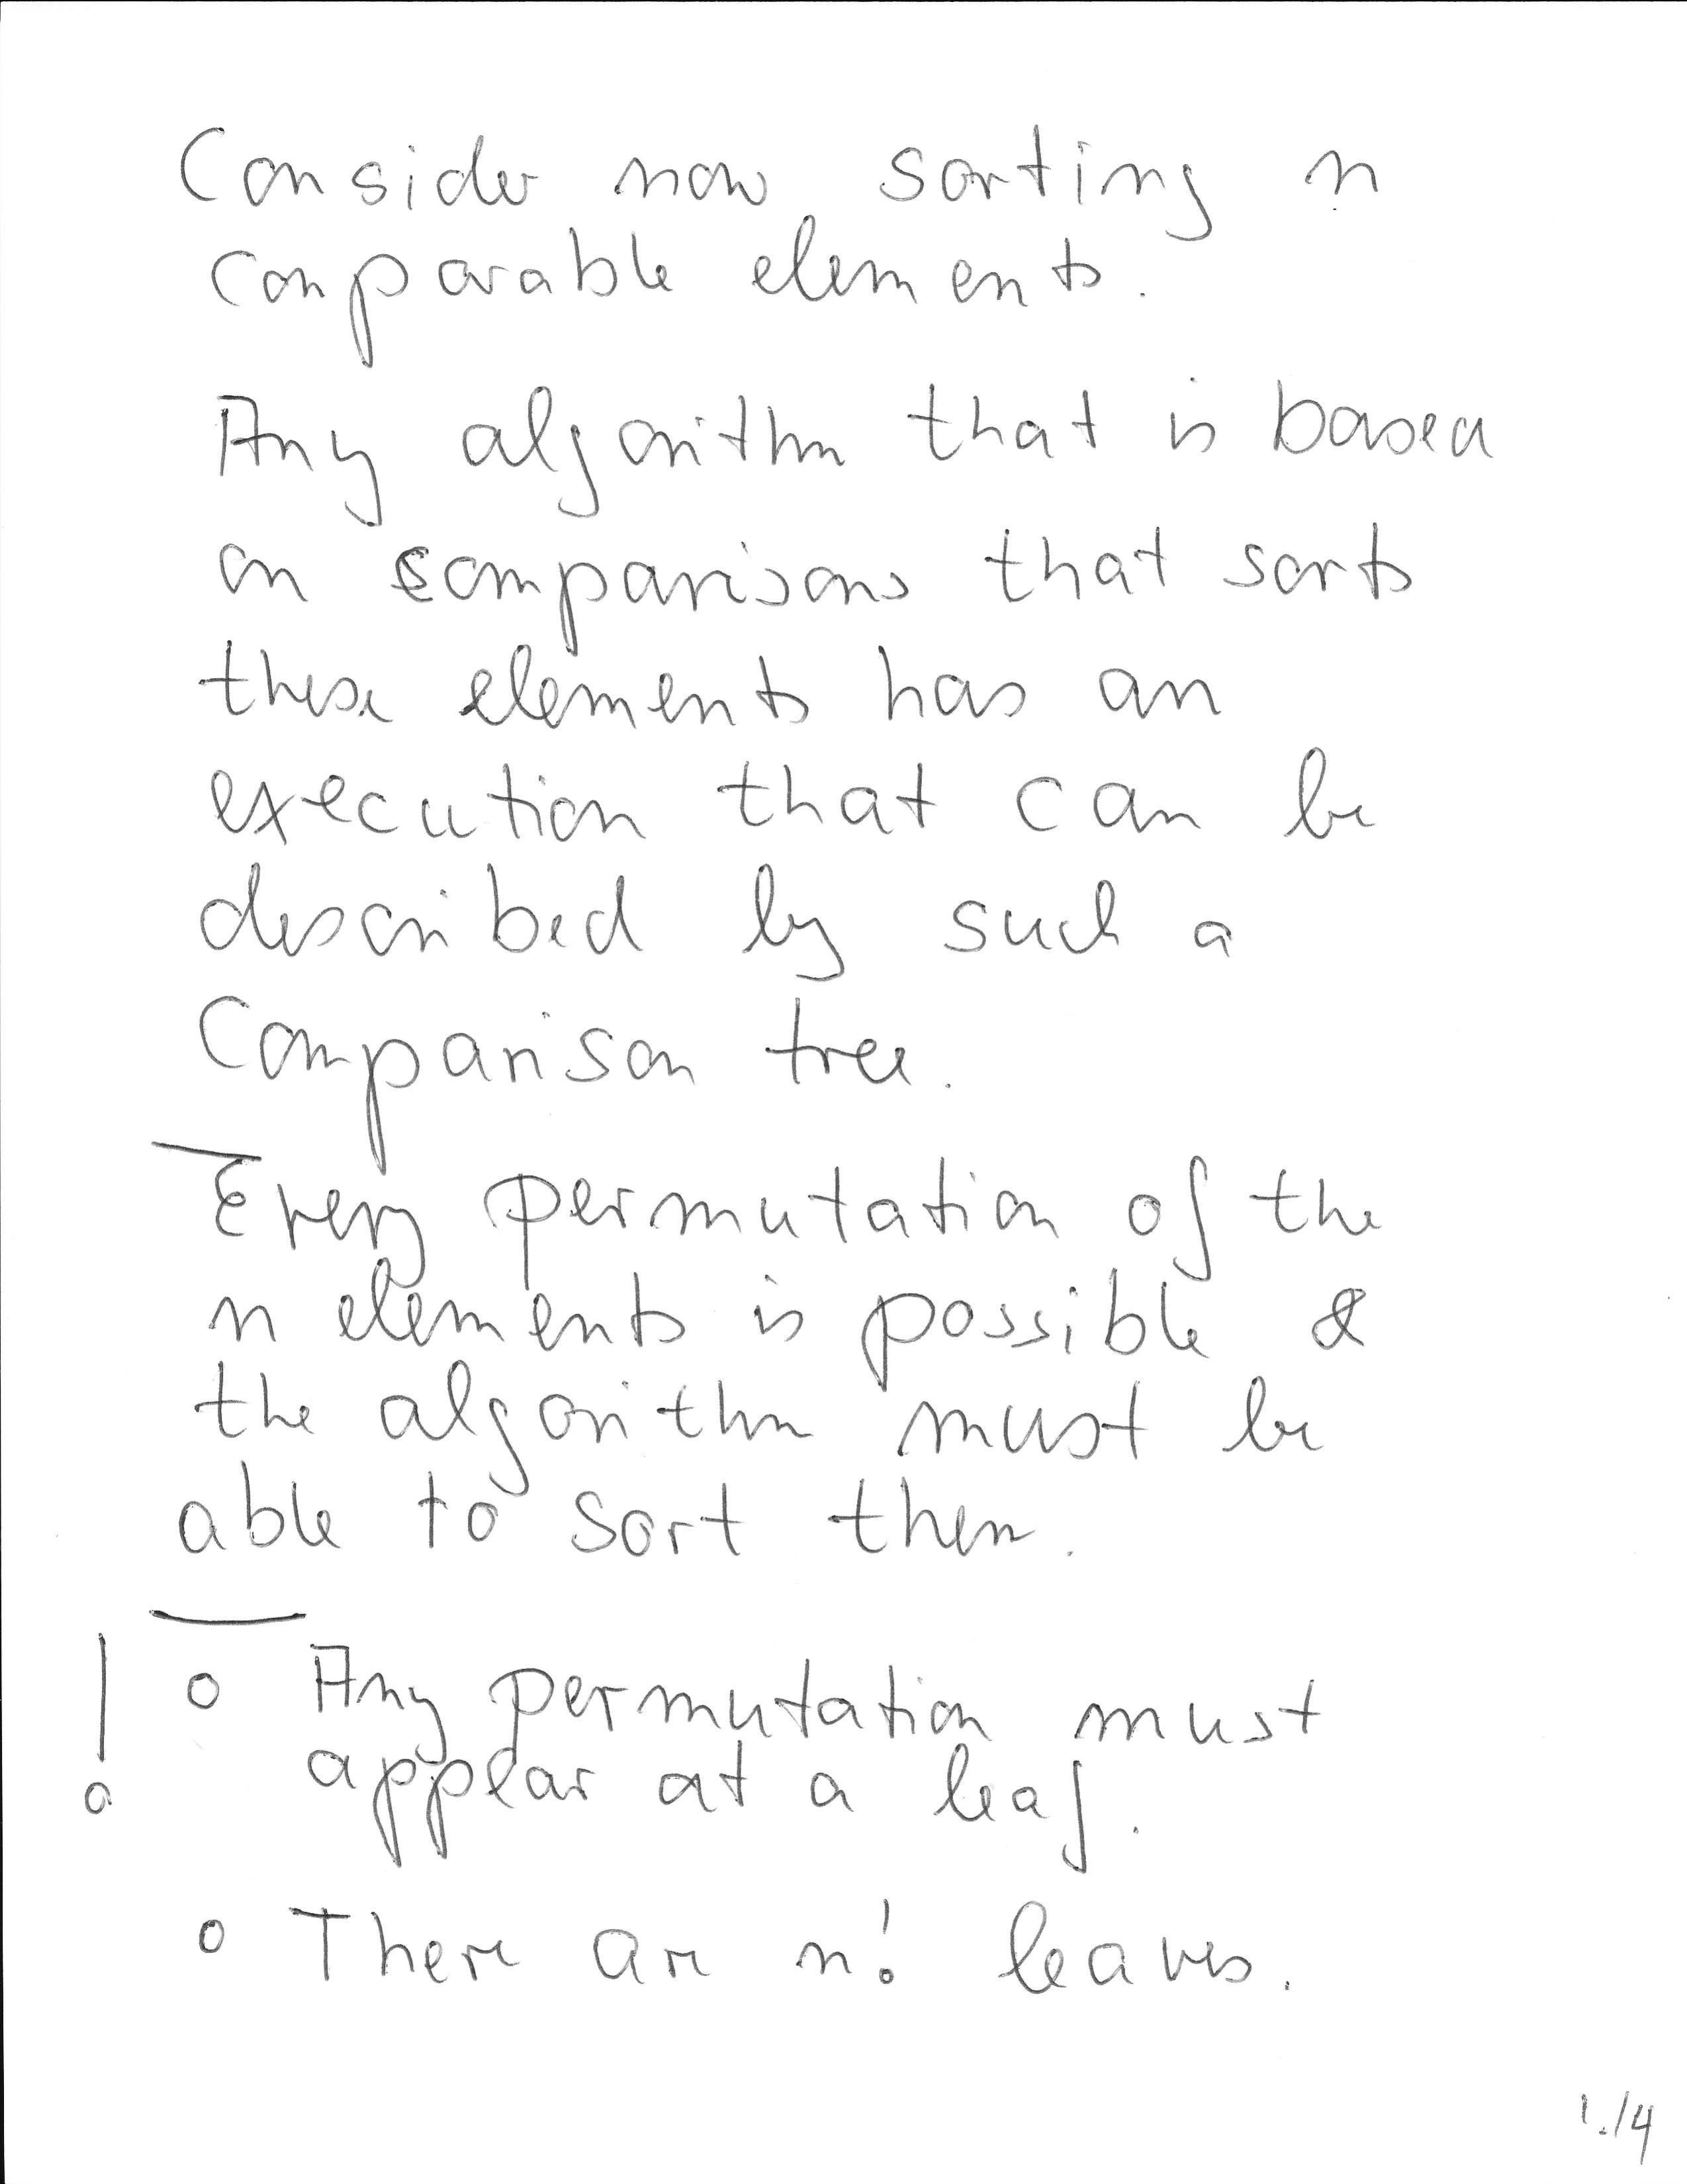 Consider now sorting n
comparable elements.
Any algorithm that is based
on comparisons that sorts
these elements has an
execution that can be
described by such a
Comparison tree.
Every permutation of the
n elements is possible &
the algorithm must be
able to sort them.
! o Any permutation must
appear at a leaf.
o There are n! leaves.
1./4